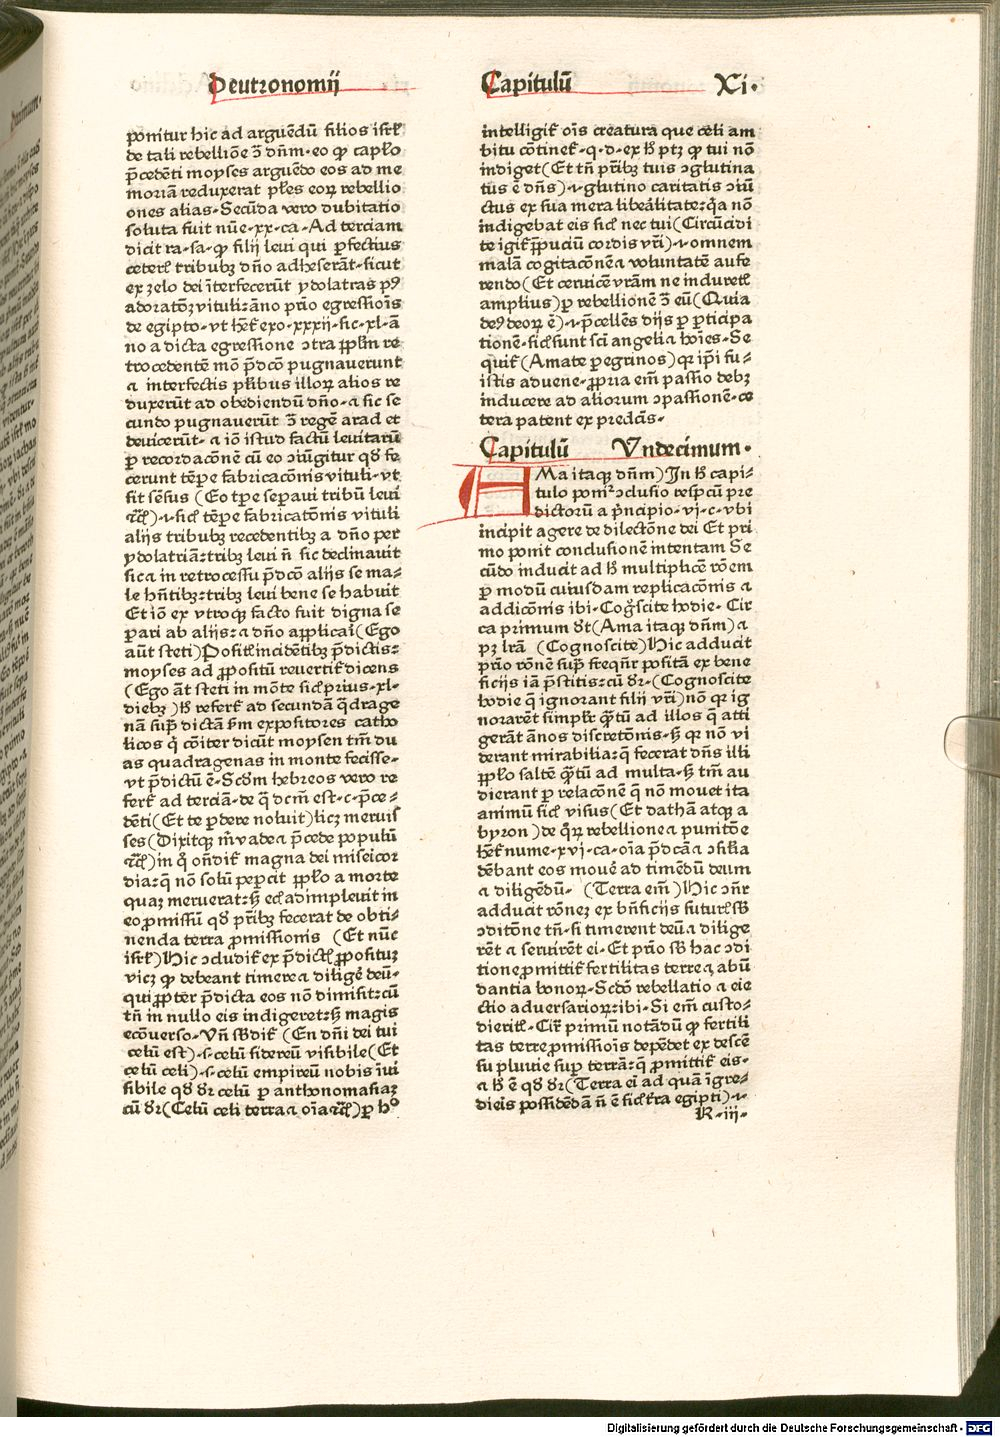 Deutronomij
Capitulū Xi.
ponitur hic ad arguēdū filios isrl̄
de tali rebelliōe ɔ̄ dn̄m·eo ꝙ cap̄lo
p̄cedēti moyses arguēdo eos ad me
moriam reduxerat pl̄es eoꝝ rebellio
ones alias·Secūda vero dubitatio
soluta fuit nūe·xx·ca·Ad terciam
dicit ra·sa·ꝙ filij leui qui ꝑfectius
ceterl̄ tribubꝫ dn̄o adheserāt·sicut
ex zelo dei īterfecerūt ydolatras pꝰ
adoratōꝫ vituli:āno prīo egressiōis
de egipto·vt hēt̄ exo·xxxij·sic·xl·ā
no a dicta egressione ɔtra ꝓpl̄m re
trocedentē mō p̄dcō pugnauerunt
⁊ interfectis pl̄ibus illoꝝ alios re
duxerūt ad obediendū dn̄o·⁊ sic se
cundo pugnauerūt ɔ̄ regē arad et
deuicerūt·⁊ iō istud factū leuitarū
ꝑ recordacōnē cū eo ɔiūgitur qd̄ fe
cerunt tēpe fabricacōnis vituli·vt
sit sēsus (Eo tꝑe seꝑaui tribū leui
⁊c̄)·i·sicl̄ tēpe fabricatōnis vituli
alijs tribubꝫ recedentibꝫ a dn̄o per
ydolatriā:tribꝫ leui n̄ sic declinauit
sic⁊ in retrocessu p̄dcō alijs se ma⸗
le hn̄tibꝫ:tribꝫ leui bene se habuit
Et iō ex vtroqꝫ facto fuit digna se
ꝑari ab alijs:⁊ dn̄o applicai(Ego
aūt steti)Positl̄ incidētibꝫ p̄dictis:
moyses ad ꝓpositū reuertit̄ dicens
(Ego āt steti in mōte sicl̄ prius·xl·
diebꝫ )h̄ refert̄ ad secundā q̄drage
nā supͣ dictā sm̄ expositores catho
licos qͥ cōiter dicūt moysen tm̄ du
as quadragenas in monte fecisse·
vt p̄dictū ē·Scd̄m hebreos vero re
fert̄ ad terciā·de qͣ dcm̄ est·c·p̄ce⸗
dēti(Et te ꝑdere noluit)licꝫ meruis
ses(Dixitqꝫ m̄ vade ⁊ p̄cede populū
⁊c̄)in qͦ on̄dit̄ magna dei misericor
dia:qͥ nō solū peꝑcit ꝓpl̄o a morte
quaꝫ meruerat:ꝫ ecl̄ adimpleuit in
eo ꝓmissū qd̄ prībꝫ fecerat de obti⸗
nenda terra ꝓmissionis (Et nūc
isrl̄)Hic ɔcludit̄ ex p̄dictl̄ ꝓpositu̅
vicꝫ ꝙ debeant timere ⁊ diligē deū·
qui ꝓpter p̄dicta eos nō dimisit:cū
tn̄ in nullo eis indigeret:ꝫ magis
ecōuerso·Vn̄ sb̄dit̄ (En dn̄i dei tui
celū est)·s·celū sidereū visibile(Et
celū celi)·s·celū empireū nobis īui
sibile qd̄ dr̄ celū ꝑ anthonomasiaꝫ
cū dr̄(Celū celi terra ⁊ oīa ⁊c̄)ꝑ hͦ
intelligit̄ oīs creatura que celi am
bitu cōtinet̄·q·d·ex h̄ ptꝫ ꝙ tui nō
indiget(Et tn̄ prībꝫ tuis ɔglutina
tus ē dn̄s)·i·glutino caritatis ɔiū
ctus ex sua mera liberalitate:qͥa nō
indigebat eis sicl̄ nec tui(Circūcidi
te igit̄ p̄puciū cordis vr̄i)·i·omnem
malā cogitacōnē ⁊ voluntatē aufe
rendo(Et ceruicē vr̄am ne induretl̄
amplius)ꝑ rebellionē ɔ̄ eū(Quia
deꝰ deoꝝ ē)·i·p̄cellēs dijs ꝑ ꝑticipa
tionē·sicl̄ sunt sc̄i angeli ⁊ hoīes·Se
quit̄ (Amate ꝑegrinos)qꝛ ip̄i fu⸗
istis aduene·ꝓpria em̄ passio debꝫ
inducere ad aliorum ɔpassionē·ce
tera patent ex predc̄is·
Capitulū Vndecimum·
AMa itaqꝫ dn̄m) In h̄ capi⸗
tulo ponit² ɔclusio respc̄u pre
dictorū a prīncipio·vi·c·vbi
incipit agere de dilectōne dei Et pri
mo ponit conclusionē intentam Se
cūdo inducit ad h̄ multiplicē rōem
ꝑ modū cuiusdam replicacōnis ⁊
addicōnis ibi·Cogͦscite hodie· Cir
ca primum dr̄(Ama itaqꝫ dn̄m)⁊
pꝫ lr̄a (Cognoscite)Hic adducit
prīo rōnē supͣ freqn̄r positā ex bene
ficijs iā p̄stitis:cū dr̄·(Cognoscite
hodie q̄ ignorant filij vr̄i)nō qꝛ ig
norarēt simplr̄ qͣtū ad illos q̄ atti
gerāt ānos discretōnis·ꝫ qꝛ nō vi
derant mirabilia:q̄ fecerat dn̄s illi
ꝓpl̄o saltē qͣtū ad multa·ꝫ tm̄ au
dierant ꝑ relacōnē q̄ nō mouet ita
animū sicl̄ visus(Et dathā atqꝫ a
byron )de qͦꝝ rebellione ⁊ punitōe
hēt̄ nume·xvi·ca·oīa p̄dcā ⁊ ɔsil̄ia
dēbant eos mouē ad timēdū deum
⁊ diligēdū· (Terra em̄ )Hic ɔn̄r
adducit rōneꝫ ex bn̄ficijs futurl̄ sb̄
ɔditōne tn̄·si timerent deū ⁊ dilige
rēt ⁊ seruirēt ei·Et prīo sb̄ hac ɔdi
tione ꝓmittit̄ fertilitas terre ⁊ abū
dantia bonoꝝ·Scdō rebellatio ⁊ eie
ctio aduersarioꝝ:ibi·Si em̄ custo⸗
dieritl̄·Cir̄ primū notādū ꝙ fertili
tas terre ꝓmissiōis depēdet ex descē
su pluuie supͣ terrā:q̄ ꝓmittit̄ eis·
⁊ h̄ ē qd̄ dr̄(Terra eī ad quā īgre⸗
dieis possidēdā n̄ ē sicl̄ t̄ra egipti)·i·
R·iij·
Digitalisierung gefördert durch die Deutsche Forschungsgemeinschaft · DFG